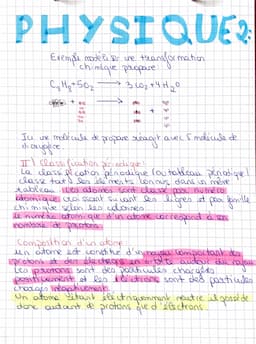 PHYSIQUE 2:
Exemple modéliser une transformation
chimique propane:
C3H8+5O2 → 3CO2+4H2O
+ → +
Ici une molécule de propane réagit avec 5 molécule de
dioxygène.
II) Classification périodique:
La classification périodique (ou tableau périodique)
classe tous les éléments connus dans un même
tableau. Les atomes sont classé par numéro
atomique croissant suivant les lignes et par famille
chimique selon les colonnes.
Le numéro atomique d'un atome correspond à son
nombre de protons.
Composition d'un atome:
Un atome est constitué d'un noyau comportant des
protons et des électrons en autour du noyau.
Les protons sont des particules chargées
positivement et les électrons sont des particules
chargés négativement.
Un atome étant électriquement neutre il possède
donc autant de protons que d'électrons.